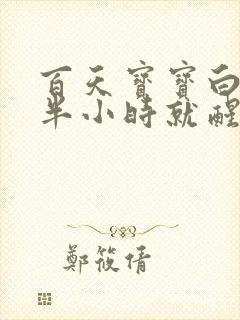 百天寶寶白
半小時就醒
鄭筱倩